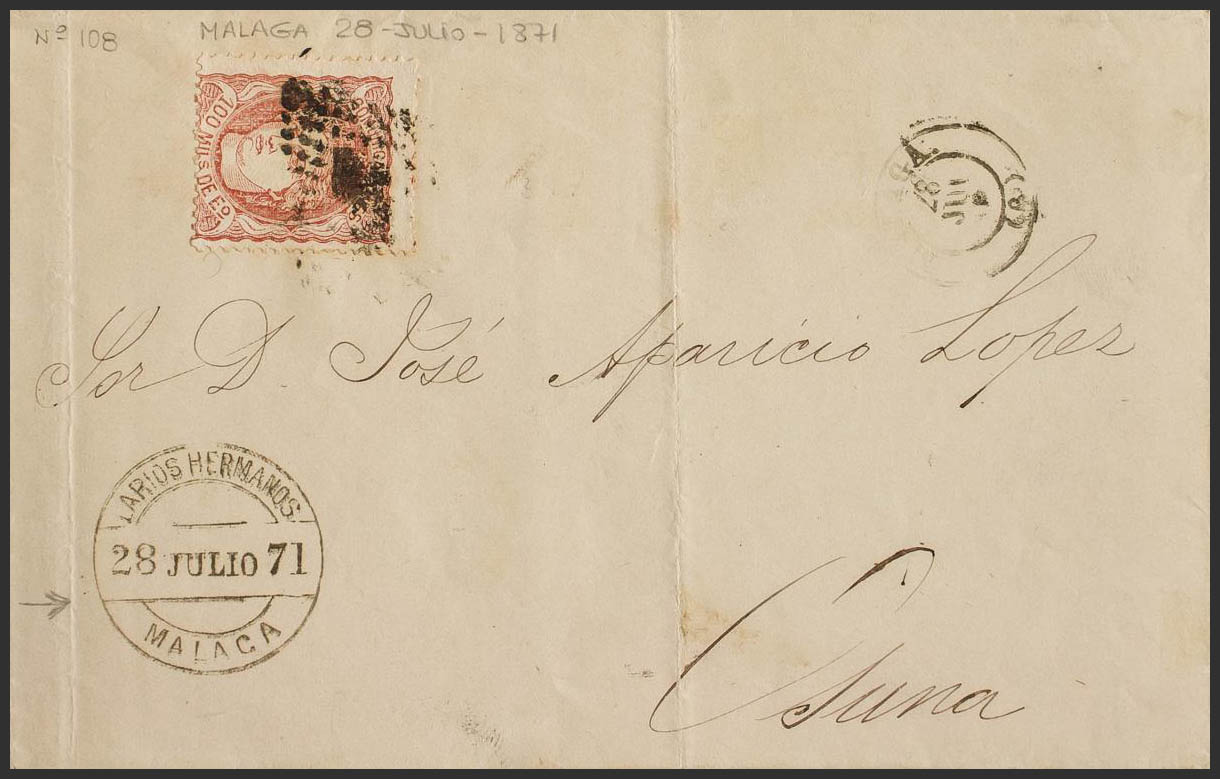 Nº 108 MALAGA 28-JULIO-1871
100 MILS DE EO
28
JUL
(8)
Sor D. José Aparicio Lopez
LARIOS HERMANOS.
28 JULIO 71
MALAGA
Osuna